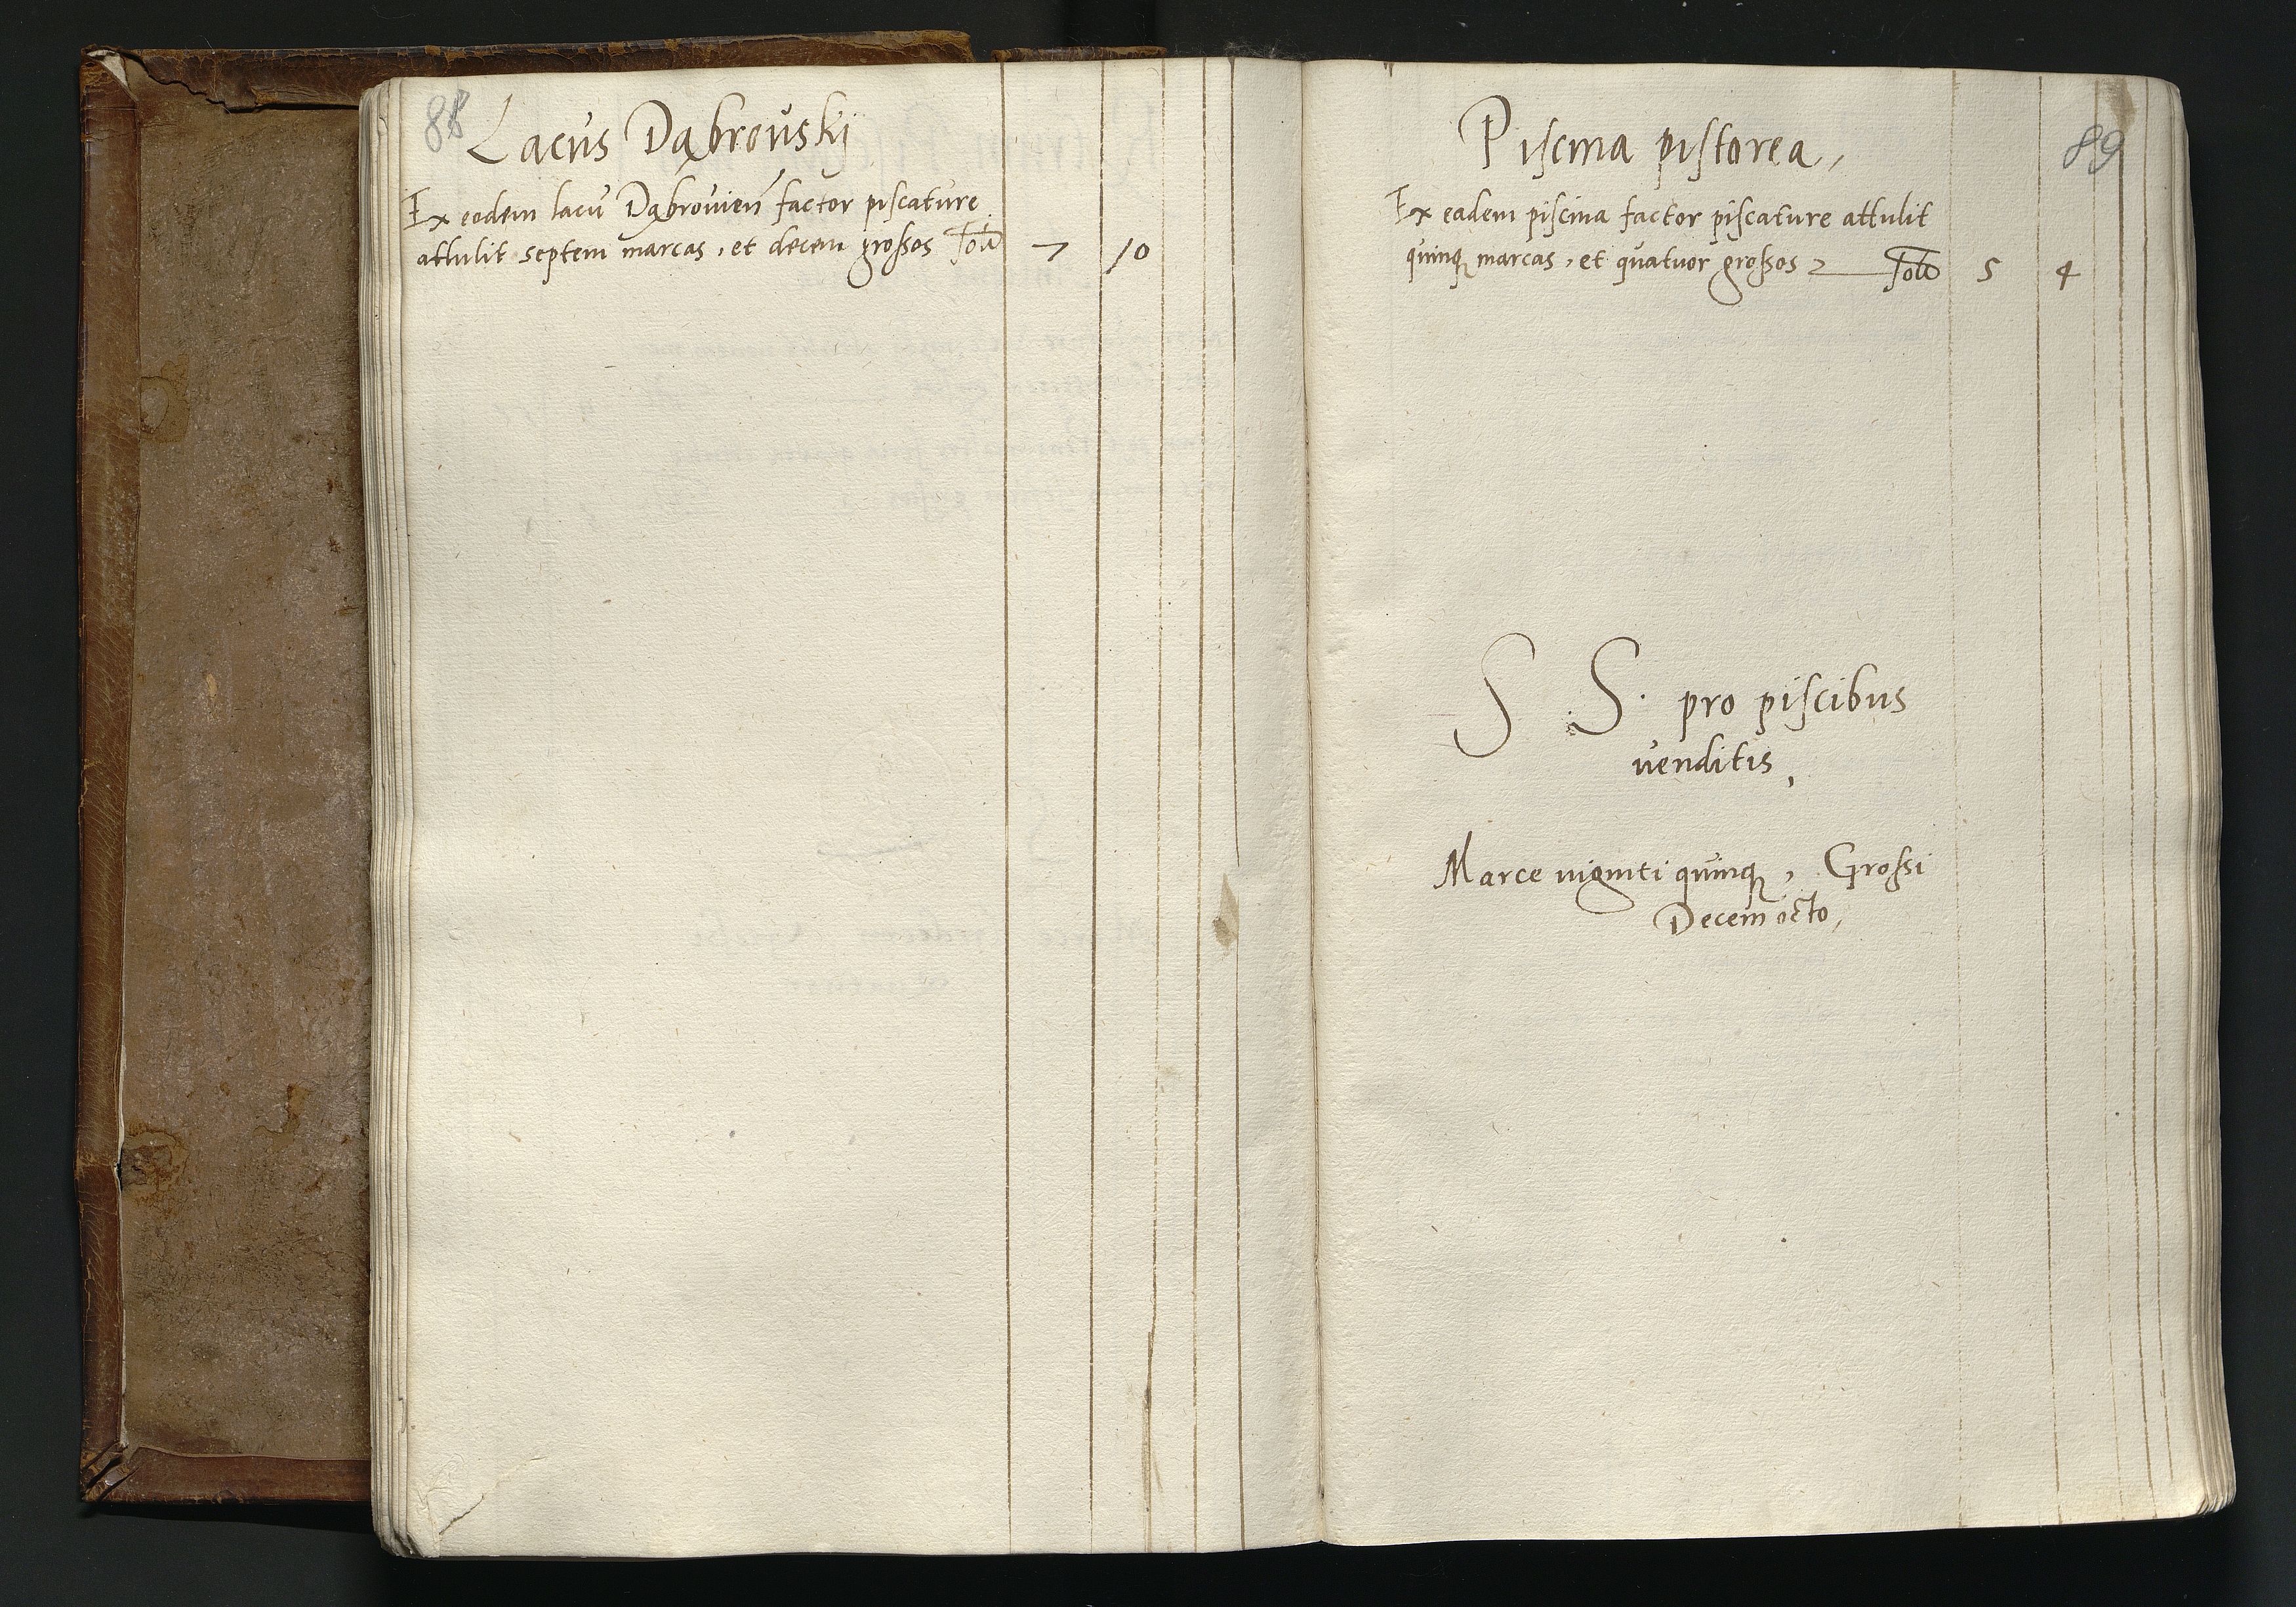 88
Lacus Dąbrouskÿ
Ex eodem lacu Dąbrouien factor piscature
attulit septem marcas, et decem grossos 7 10
89
Piscina pistorea,
Ex eadem piscina factor piscature attulit
quinq marcas, et quatuor grossos 5 4
S S. pro piscibus
uenditis,
Marce uiginti quinq, Grossi
Decem octo,